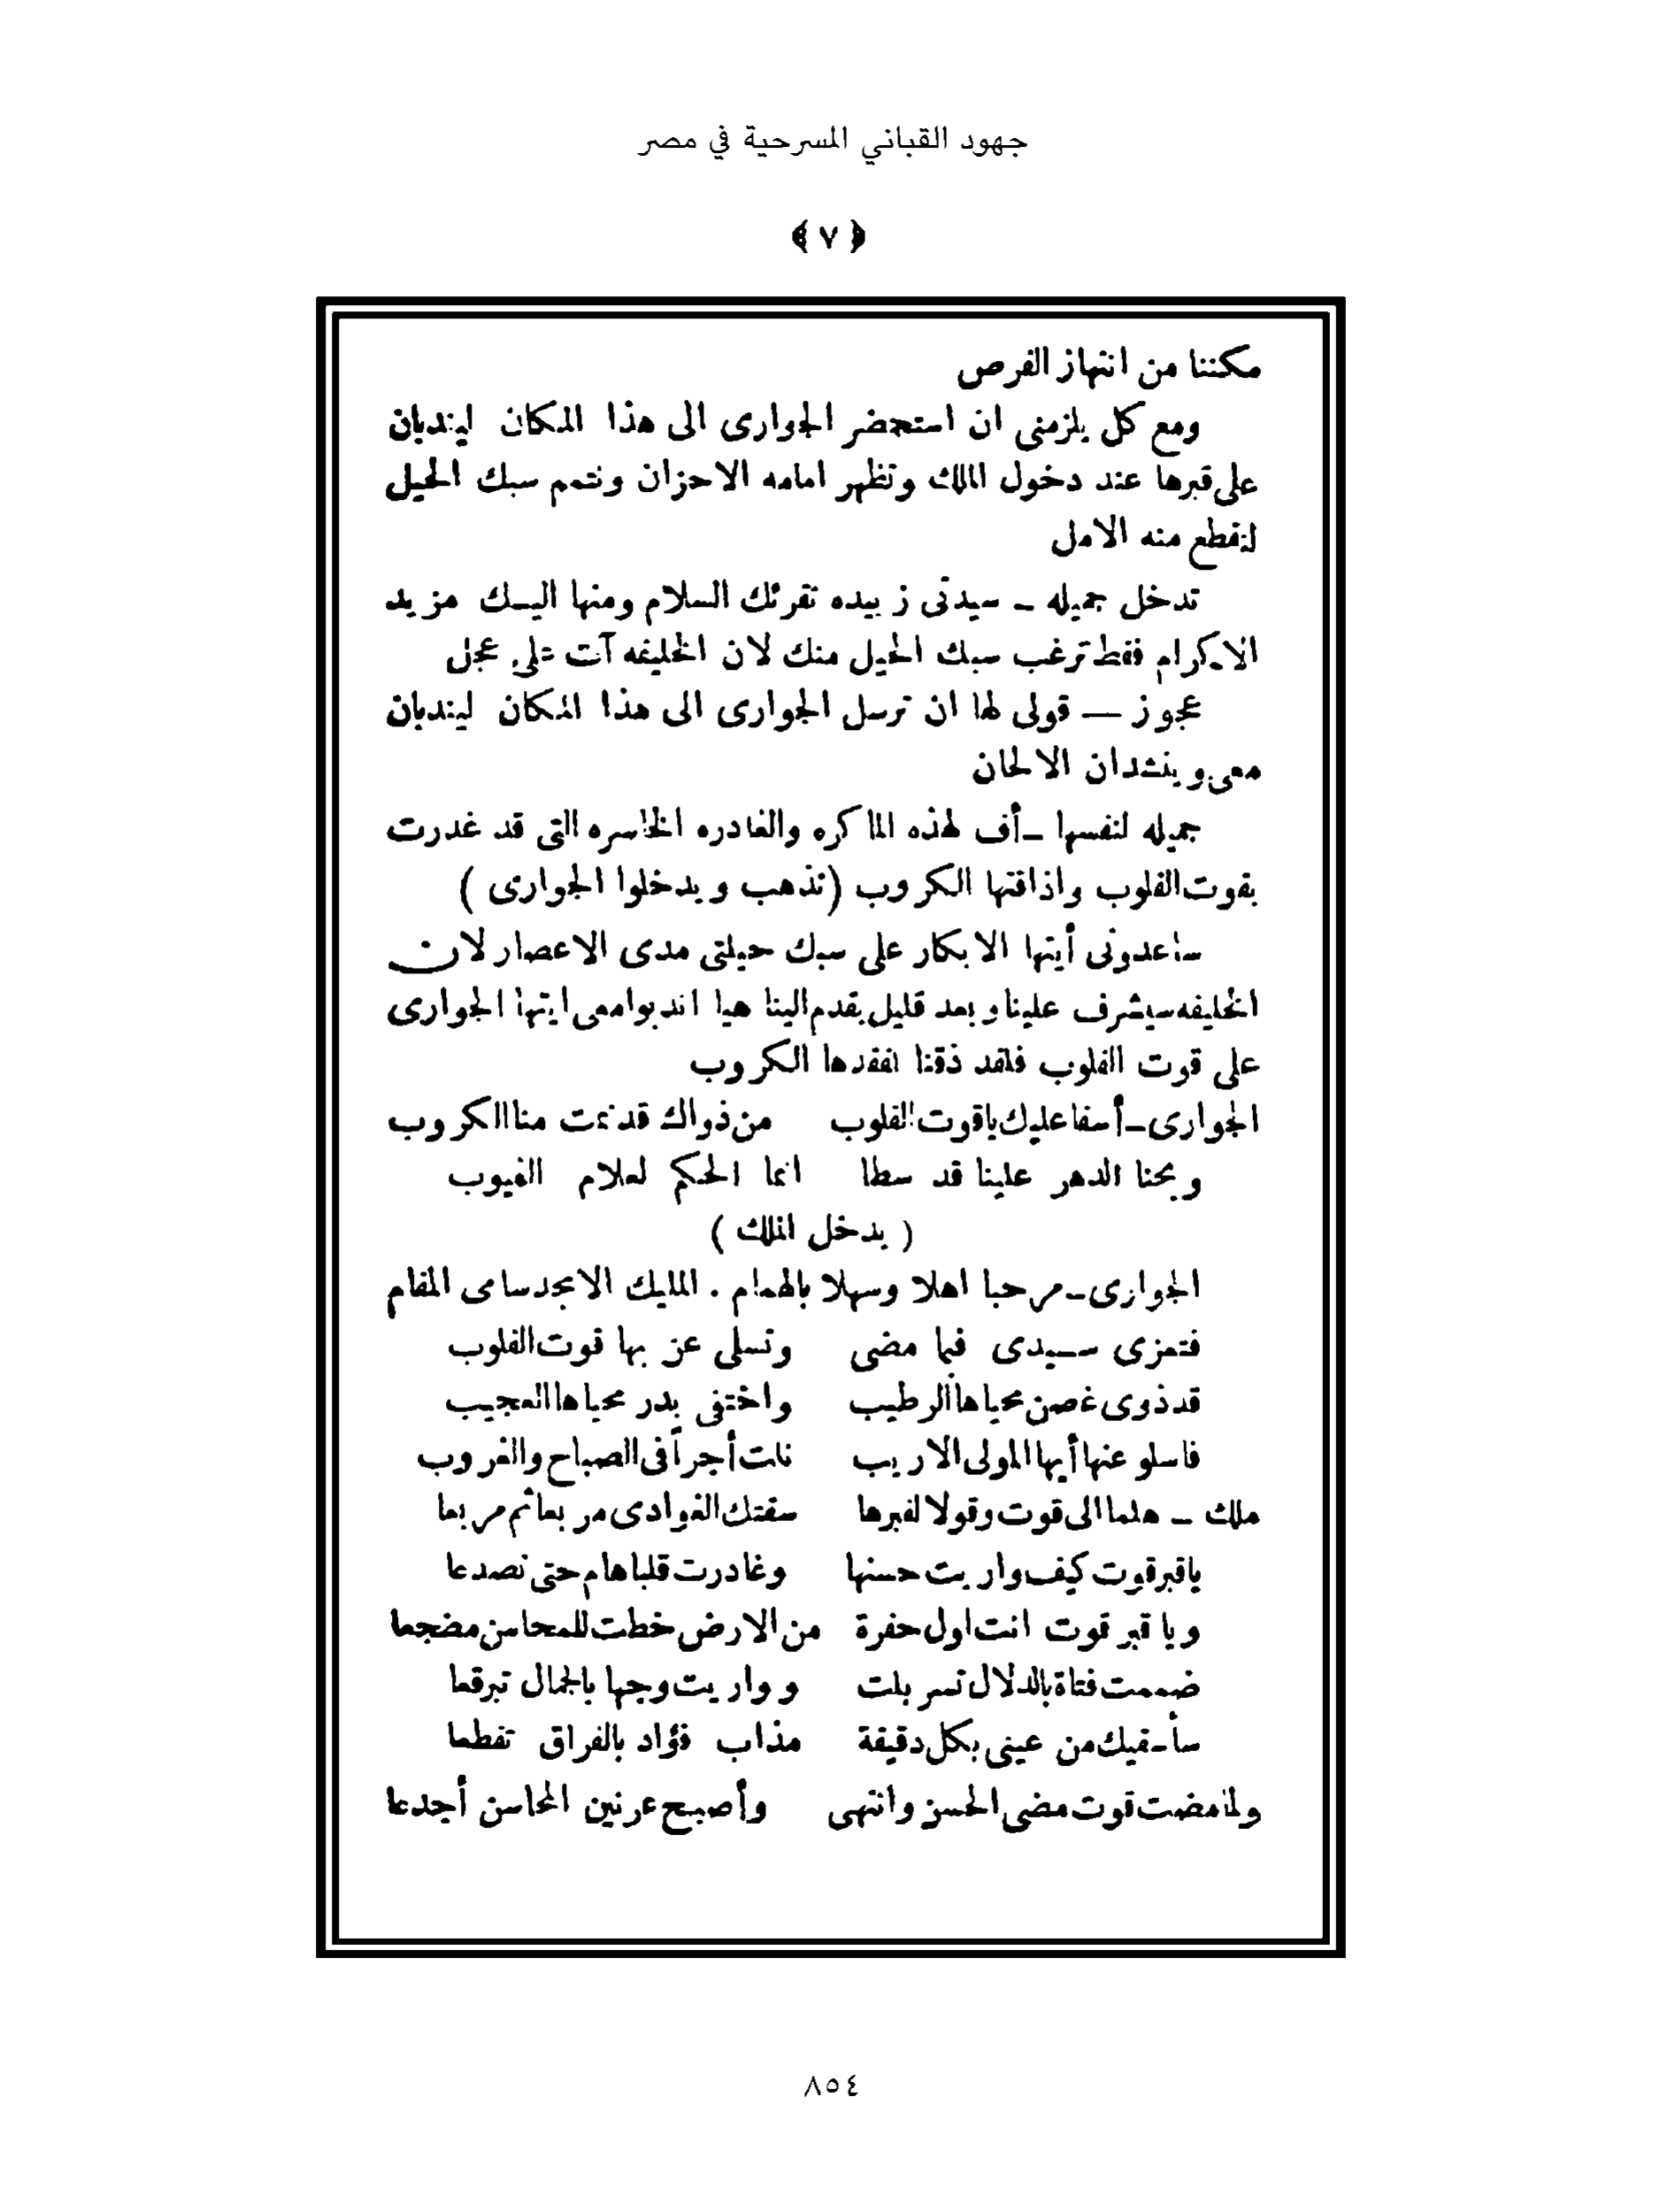 جهود القباني المسرحية في مصر
﴿ ٧ ﴾
مكننا من انتهاز الفرص
ومع كل يلزمنى ان استحضر الجوارى الى هذا المكان ليندبان
على قبرها عند دخول الملك وتظهر امامه الاحزان ونتمم سبك الحيل
لنقطع منه الامل
تدخل جميله ـ سيدتى زبيده تقرئك السلام ومنها اليـك مزيد
الاكرام فقط ترغب سبك الحيل منك لان الخليفه آت على عجل
عجوز — قولى لها ان ترسل الجوارى الى هذا المكان ليندبان
معى وينشدان الالحان
جميله لنفسها ـ أف لهذه الماكره والغادره الخاسره التى قد غدرت
بقوت القلوب واذاقتها الكروب (تذهب ويدخلوا الجوارى )
ساعدونى أيتها الابكار على سبك حيلتى مدى الاعصار لان
الخليفه سيشرف علينا وبعد قليل يقدم الينا هيا اندبوا معى ايتها الجوارى
على قوت القلوب فلقد ذقنا لفقدها الكروب
الجوارى ـ أسفا عليك ياقوت القلوب من ذواك قد نمت منا الكروب
ويحنا الدهر علينا قد سطا انما الحكم لعلام الغيوب
( يدخل الملك )
الجوارى ـ مرحبا اهلا وسهلا بالهمام . المليك الامجد سامى المقام
فتعزى سـيدى فيما مضى وتسلى عن بها قوت القلوب
قد ذوى غصن محياها الرطيب واختفى بدر محياها العجيب
فاسلو عنها أيها المولى الاريب نلت أجراً فى الصباح والغروب
ملك ـ هلما الى قوت وقولا لقبرها سقتك الغوادى مربعا ثم مربعا
ياقبر قوت كيف واريت حسنها وغادرت قلبا هام حتى تصدعا
ويا قبر قوت انت اول حفرة من الارض خطت للمحاسن مضجعا
ضممت فتاة بالدلال تسربلت وواريت وجها بالجمال تبرقعا
سأسقيك من عينى بكل دقيقة مذاب فؤاد بالفراق تقطعا
ولما مضت قوت مضى الحسن وانتهى وأصبح عرنين المحاسن أجدعا
٨٥٤